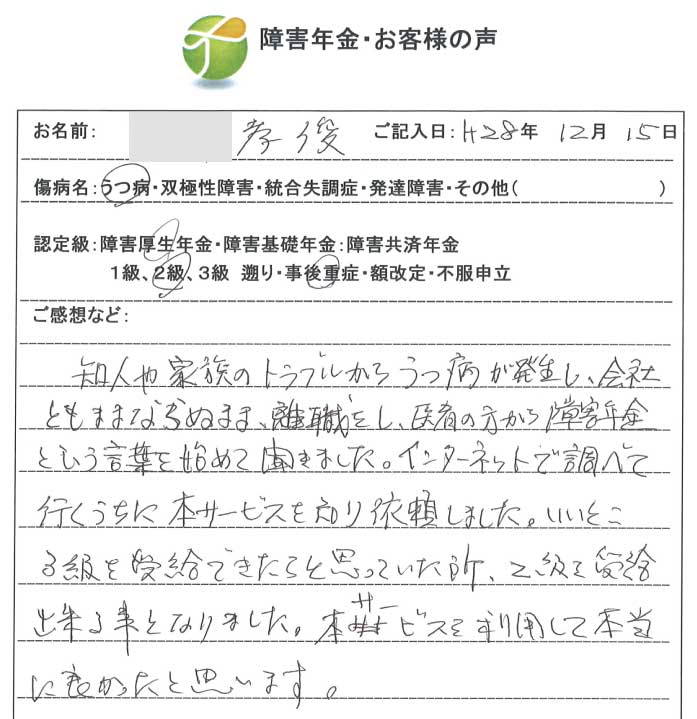 障害年金・お客様の声
お名前: 孝俊 ご記入日:H28年 12月 15日
傷病名:うつ病・双極性障害・統合失調症・発達障害・その他( )
認定級:障害厚生年金・障害基礎年金:障害共済年金
1級、2級、3級 遡り・事後重症・額改定・不服申立
ご感想など:
知人や家族のトラブルからうつ病が発生し、会社
ともままならぬまま、離職をし、医者の方から障害年金
という言葉を始めて聞きました。インターネットで調べて
行くうちに本サービスを知り依頼しました。いいとこ
3級を受給できたらと思っていた所、2級を受給
出来る事となりました。本サービスを利用して本当
に良かったと思います。